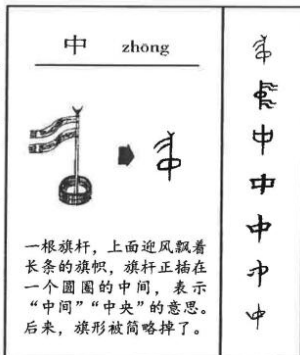 中 zhōng
一根旗杆，上面迎风飘着
长条的旗帜，旗杆正插在
一个圆圈的中间，表示
“中间”“中央”的意思。
后来，旗形被简略掉了。
中
中
中
中
中